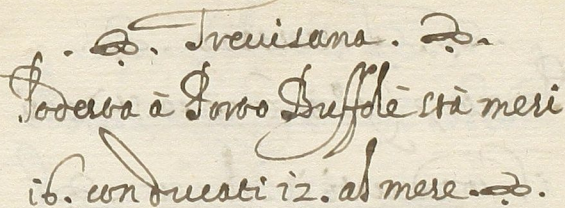 . Trevisana .
Poderba à Porto Buffolè stà mesi
16. con ducati 12. al mese .